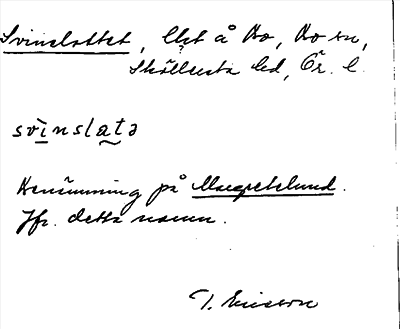 Svinslottet, lht å Bo, Bo sn,
Sköllersta hd, Ör. l.
svinslatə
Benämning på Margretelund.
Jfr. detta namn.
T. Ericson